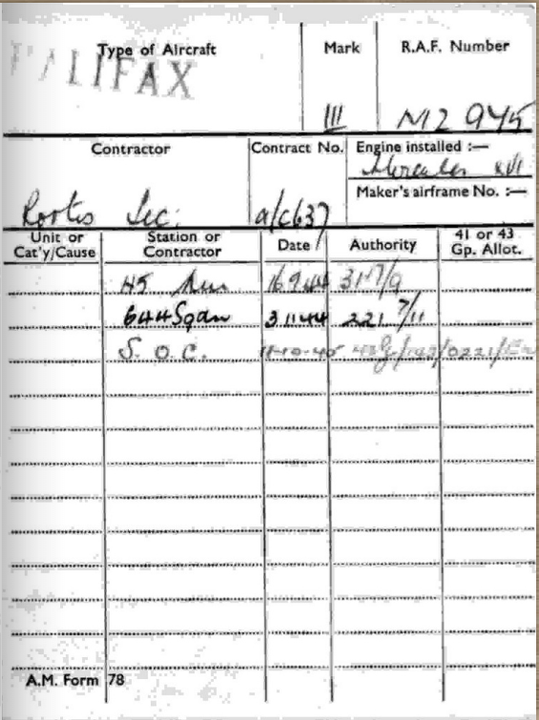 Type of Aircraft Mark R.A.F. Number
HALIFAX
III
Contractor Contract No. Engine installed :—
Hercules XVI
Maker's airframe No. :—
Rootes Sec: a/c637
Unit or Cat'y/Cause Station or Contractor Date Authority 41 or 43 Gp. Allot.
45 16 9 44 317/9
644 Sqdn 3 11 44 221 7/11
S. O. C. 11-10-45
A.M. Form 78